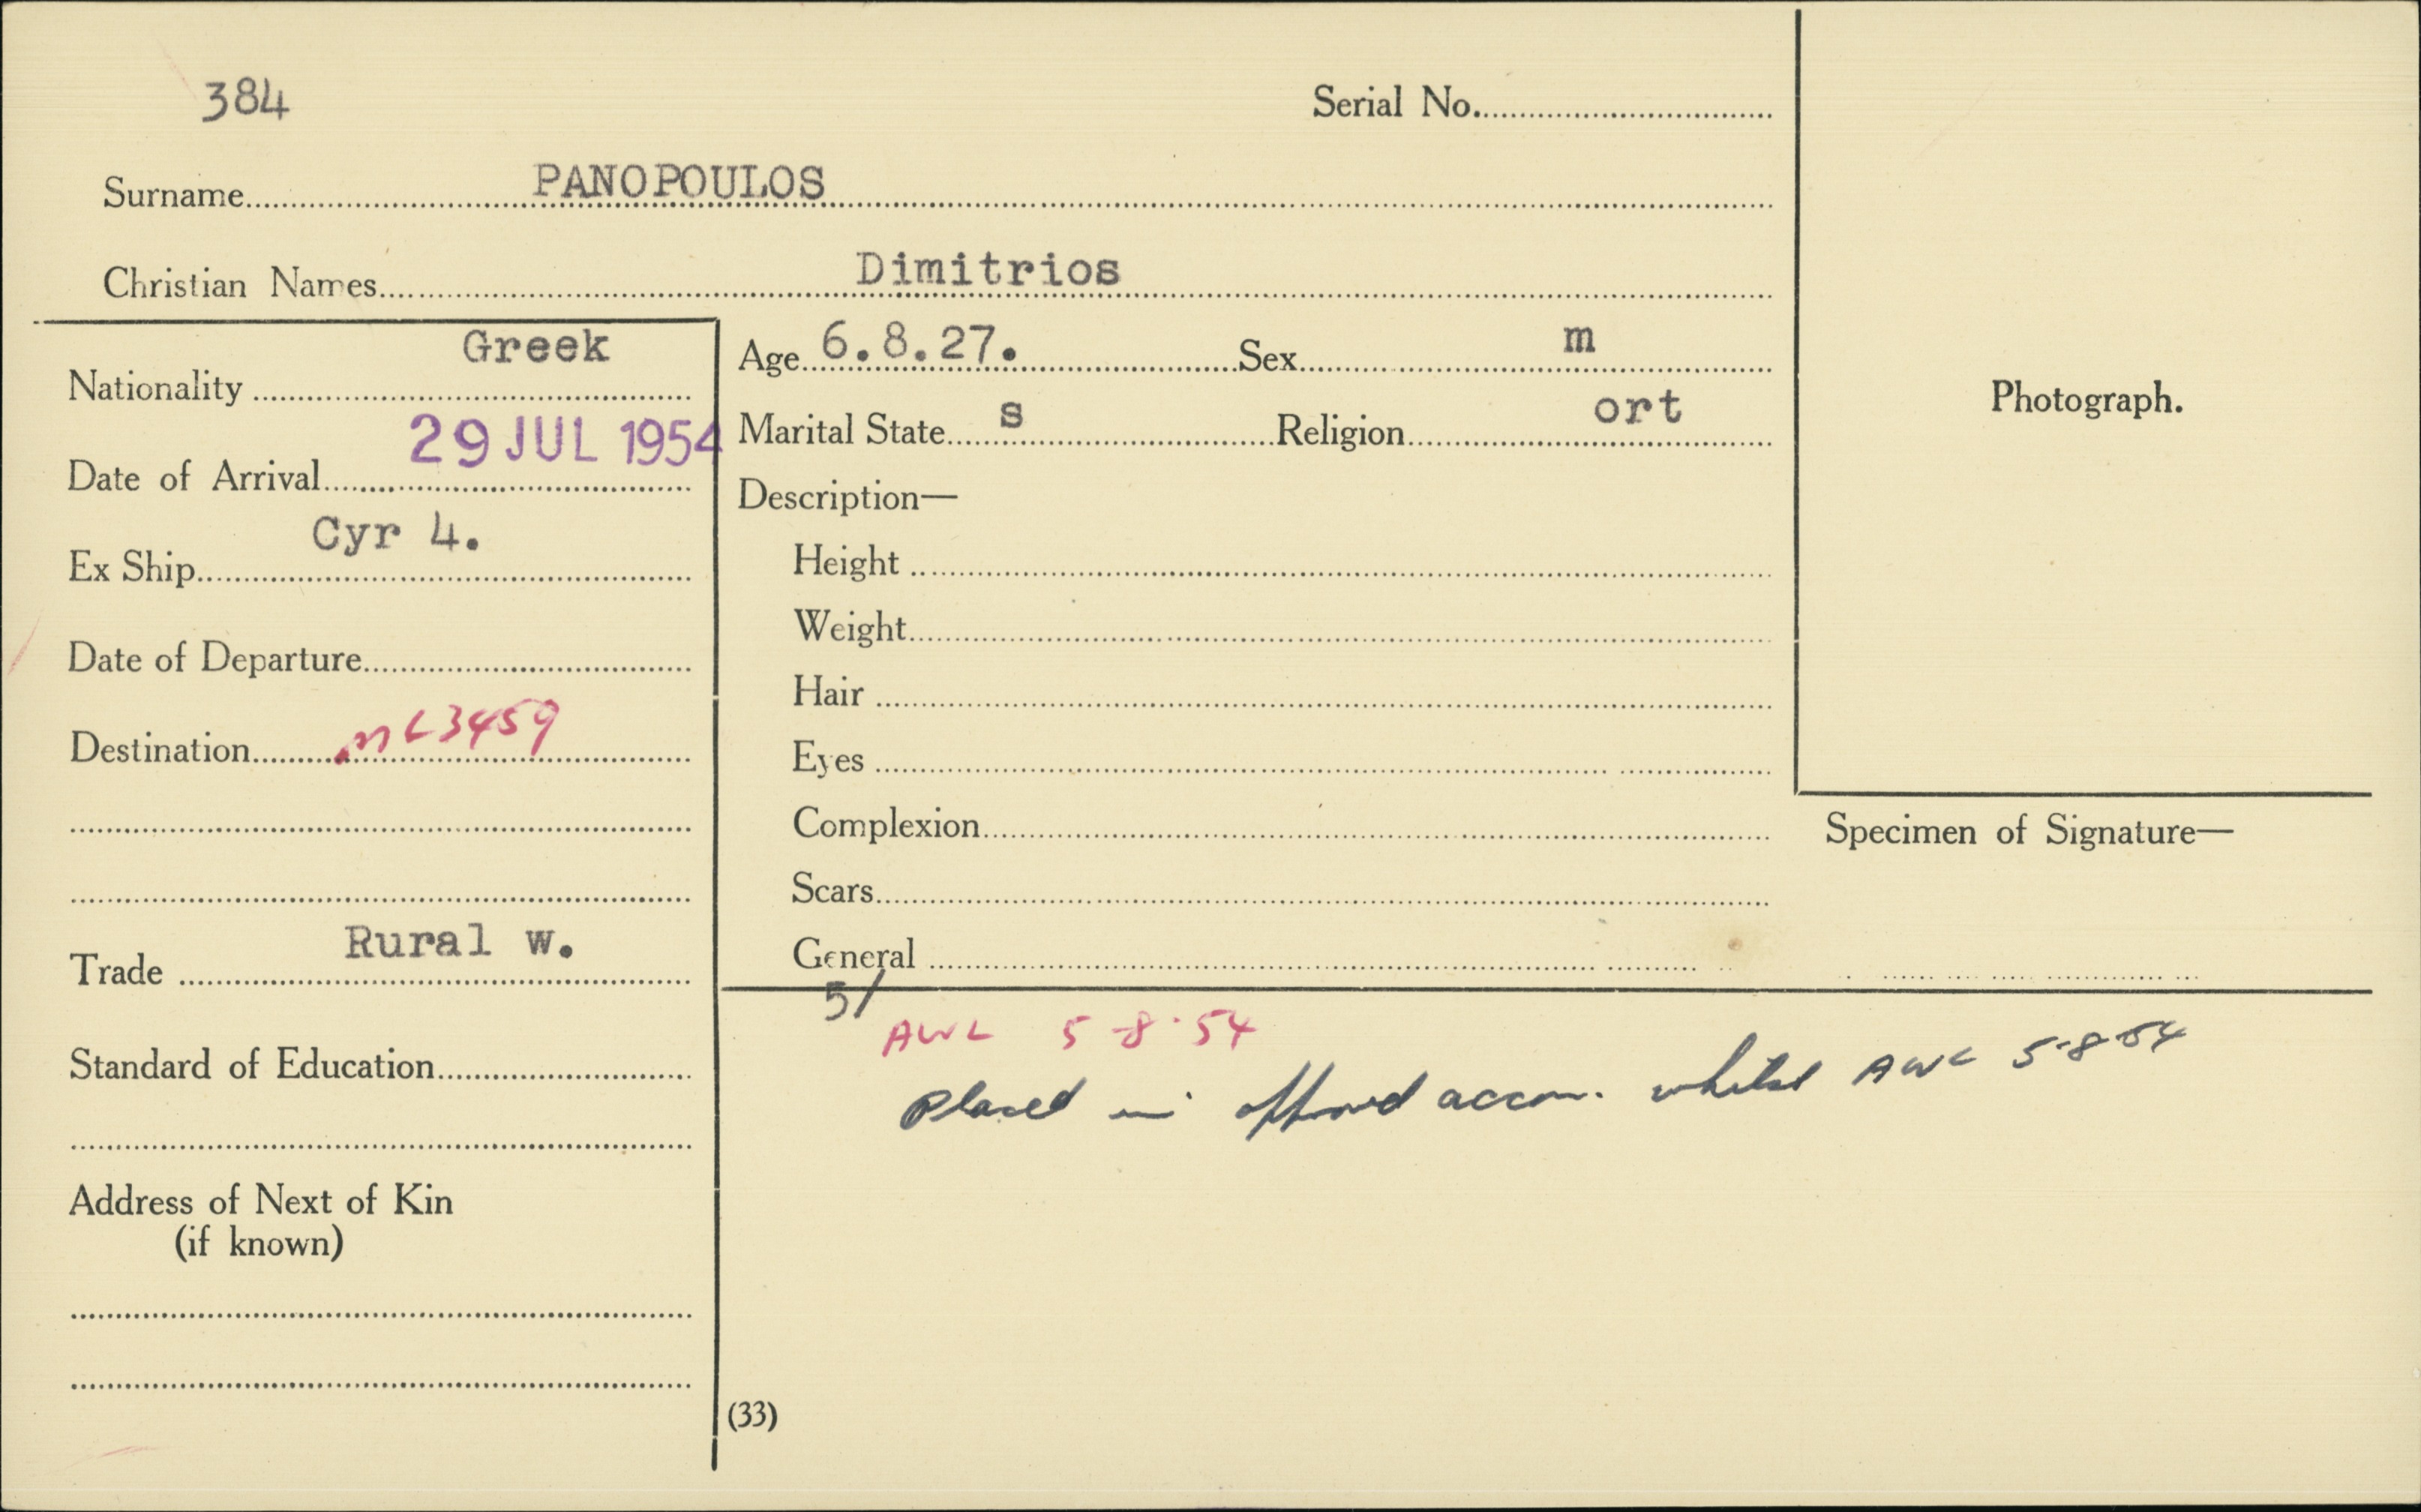 384
Serial No.
Surname PANOPOULOS
Christian Names Dimitrios
Nationality Greek
Date of Arrival 29 JUL 1954
Ex Ship Cyr 4.
Date of Departure
Destination ML3459
Trade Rural w.
Standard of Education
Address of Next of Kin
(if known)
Age 6.8.27. Sex m
Marital State s Religion ort
Description—
Height
Weight
Hair
Eyes
Complexion
Scars
General
Photograph.
Specimen of Signature—
5/
AWL 5-8-54
Placed in accom. whilst AWL 5-8-54
(33)